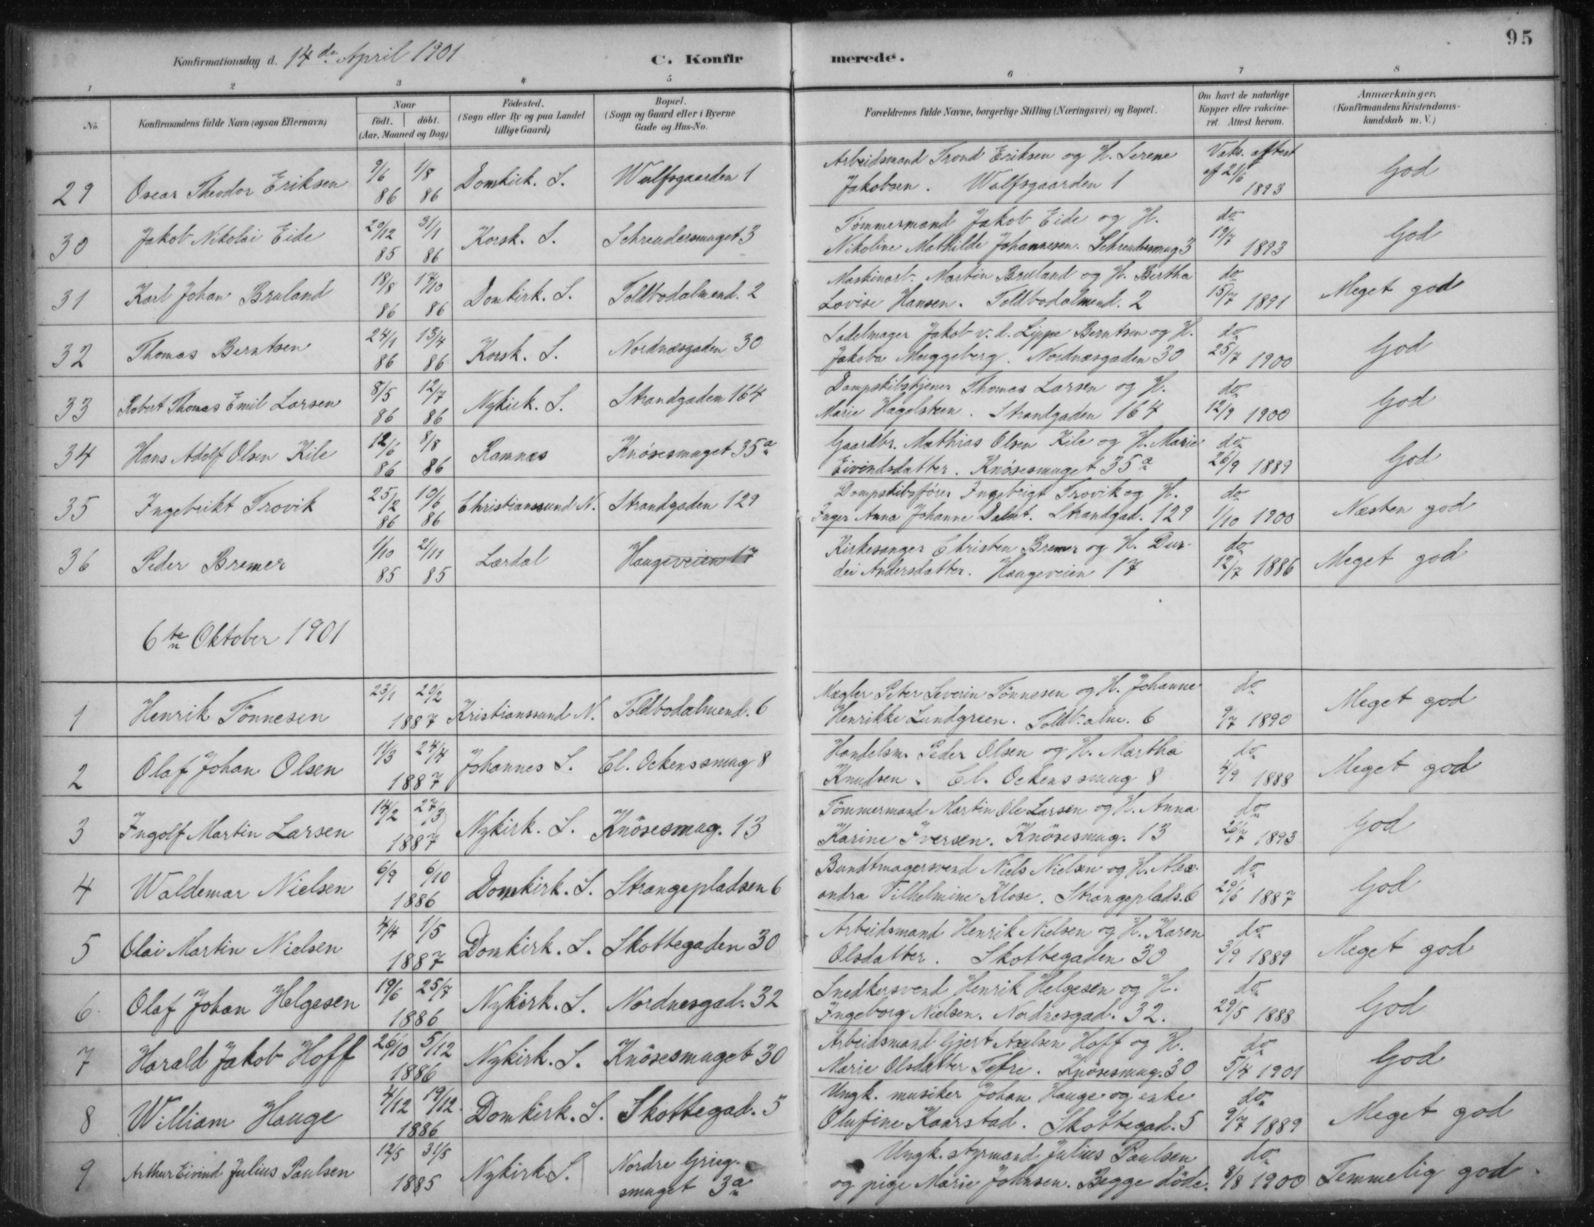 95
Konfirmationsdag d. 14de April 1901 C. Konfirmerede.
1 2 3 4 5 6 7 8
No. Konfirmandens fulde Navn (ogsaa Efternavn) Naar født. døbt. (Aar, Maaned og Dag) Fødested. (Sogn eller By og paa Landet tillige Gaard) Bopæl. (Sogn og Gaard eller i Byerne Gade og Hus-No. Forældrenes fulde Navne, borgerlige Stilling (Næringsvei) og Bopæl. Om havt de naturlige Kopper eller vaccineret. Attest herom. Anmærkninger. (Konfirmandens Kristendomskundskab m. V.)
29 Oscar Theodor Eriksen 9/6 86 1/8 86 Domkirk. S. Wulfsgaarden 1 Arbeidsmand Trond Eriksen og H. Serene
Jakobsen. Wulfsgaarden 1 Vaks. attest af 21/6 1893 God
30 Jakob Nikolai Eide 29/12 85 31/1 86 Korsk. S. Schreudersmuget 3 Tømmermand Jakob Eide og H.
Nikoline Mathilde Johannesen. Schreudersmug 3 do 19/7 1893 God
31 Karl Johan Bruland 18/8 86 17/10 86 Domkirk. S. Toldbodalmend. 2 Maskinarb. Martin Bruland og H. Bertha
Lovise Hansen. Toldbodalmend. 2 do 15/7 1891 Meget god
32 Thomas Berntsen 24/1 86 13/4 86 Korsk. S. Nordnæsgaden 30 Sadelmager Jakob v. d. Lippe Berntsen og H.
Jakoba Meyggeberg. Nordnæsgaden 30 do 25/7 1900 God
33 Robert Thomas Emil Larsen 8/5 86 12/7 86 Nykirk. S. Strandgaden 164 Dampskibstjener Thomas Larsen og H.
Marie Hagelsteen. Strandgaden 164 do 12/9 1900 God
34 Hans Adolf Olsen Kile 12/6 86 8/8 86 Ramnæs Knøsesmuget 35a Gaardbr. Mathias Olsen Kile og H. Marie
Eivindsdatter. Knøsesmuget 35a do 26/9 1889 God
35 Ingebrikt Trovik 25/2 86 10/6 86 Christianssund N. Strandgaden 129 Dampskibsfører Ingebrigt Trovik og H.
Inger Anna Johanne Dahl. Strandgad. 129 do 1/10 1900 Næsten god
36 Peder Bremer 1/10 85 2/11 85 Lærdal Haugeveien 17 Kirkesanger Christen Bremer og H. Durdei
Andersdatter. Haugeveien 17 do 12/7 1886 Meget god
6te Oktober 1901
1 Henrik Tønnesen 23/1 29/2 1887 Kristianssund N. Toldbodalmend. 6 Mægler Peter Severin Tønnesen og H. Johanne
Henrikke Lundgreen. Toldb.alm. 6 do 9/7 1890 Meget god
2 Olaf Johan Olsen 11/3 24/4 1887 Johannes S. Cl. Ockenssmug 8 Handelsm. Peder Olsen og H. Martha
Knudsen. Cl. Ockenssmug 8 do 4/9 1888 Meget god
3 Ingolf Martin Larsen 14/2 27/3 1887 Nykirk. S. Knøsesmug. 13 Tømmermand Martin Ole Larsen og H. Anna
Karine Iversen. Knøsesmug. 13 do 26/7 1893 God
4 Waldemar Nielsen 6/9 6/10 1886 Domkirk. S. Strangepladsen 6 Bundtmagersvend Niels Nielsen og H. Alexandra
Vilhelmine Klose. Strangeplads. 6 do 29/6 1887 God
5 Olai Martin Nielsen 4/4 1/5 1887 Domkirk. S. Skottegaden 30 Arbeidsmand Henrik Nielsen og H. Karen
Olsdatter. Skottegaden 30 do 3/9 1889 Meget god
6 Olaf Johan Helgesen 19/6 25/7 1886 Nykirk. S. Nordnesgad. 32 Snedkersvend Henrik Helgesen og H.
Ingeborg Nielsen. Nodnesgad. 32. do 29/5 1888 God
7 Harald Jakob Hoff 26/10 5/12 1886 Nykirk. S. Knøsesmuget 30 Arbeidsmand Gjert Hoff og H.
Marie Olsdatter Tefre. Knøsesmug. 30 do 5/4 1901 God
8 William Hauge 4/12 19/12 1886 Domkirk. S. Skottegad. 5 Ungk. musiker Johan Hauge og enke
Olufine Kaarstad. Skottegad. 5 do 9/7 1889 Meget god
9 Arthur Eivind Julius Paulsen 12/5 31/5 1885 Nykirk S. Nordre Griegsmuget 3a Ungk. styrmand Julius Paulsen
og pige Marie Johnsen. Begge døde. do 8/8 1900 Temmelig god.